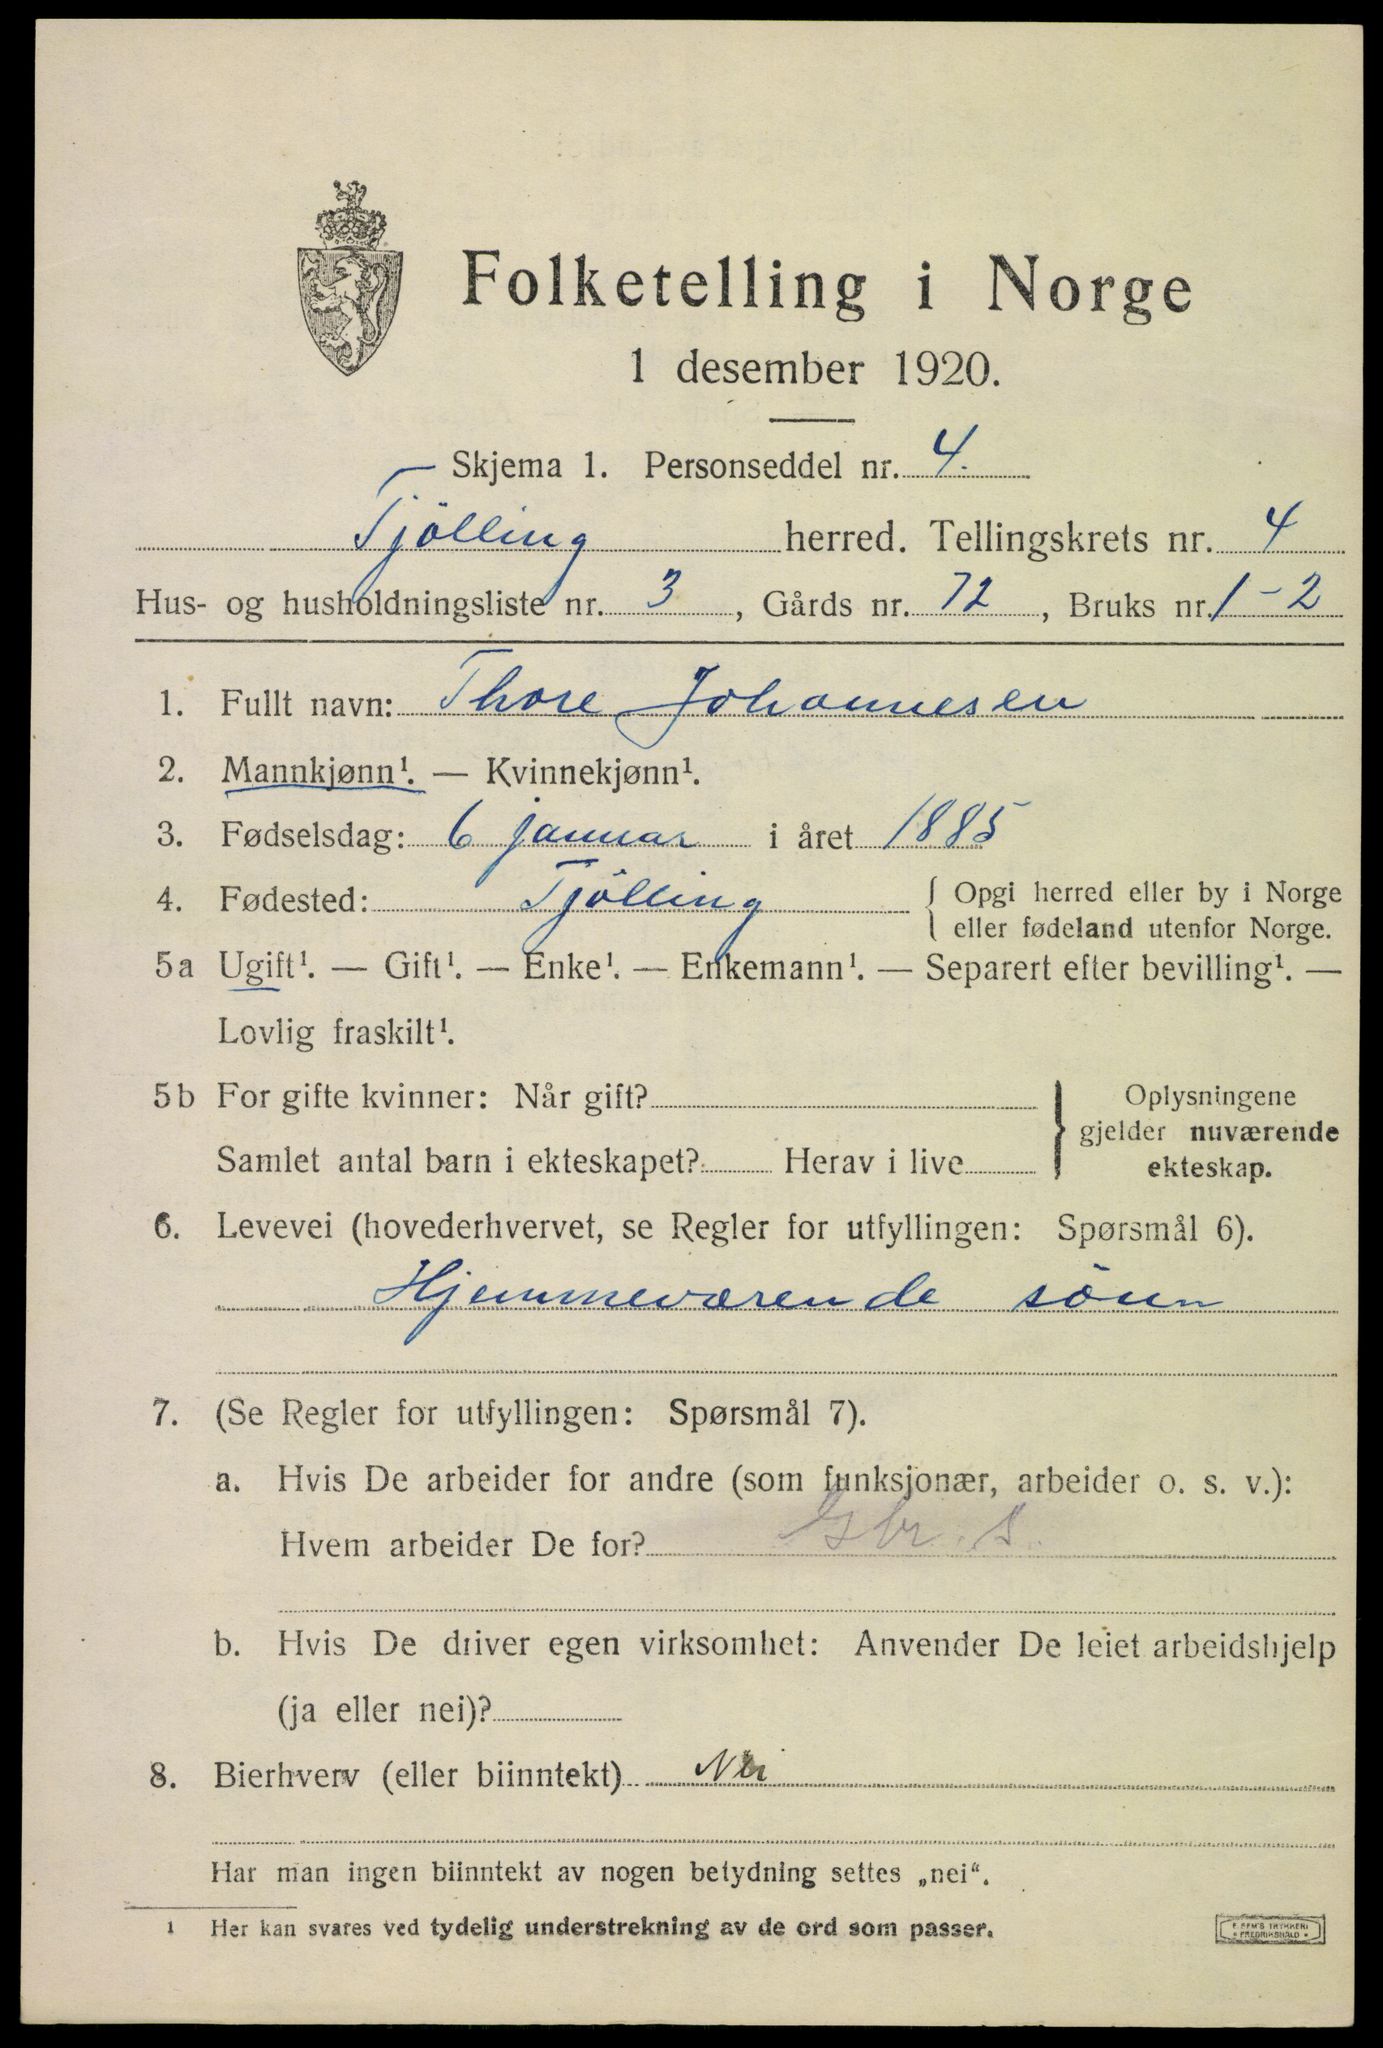 Folketelling i Norge
1 desember 1920.
Skjema 1. Personseddel nr. 4.
Tjölling herred. Tellingskrets nr. 4
Hus- og husholdningsliste nr. 3, Gårds nr. 72, Bruks nr. 1-2
1. Fullt navn: Thore Johannesen
2. Mannkjønn¹. — Kvinnekjønn¹.
3. Fødselsdag: 6 januar i året 1885
4. Fødested: Tjölling { Opgi herred eller by i Norge
eller fødeland utenfor Norge.
5a Ugift¹. — Gift¹. — Enke¹. — Enkemann¹. — Separert efter bevilling¹. —
Lovlig fraskilt¹.
5b For gifte kvinner: Når gift? } Oplysningene
gjelder nuværende
Samlet antal barn i ekteskapet? Herav i live ekteskap.
6. Levevei (hovederhvervet, se Regler for utfyllingen: Spørsmål 6).
Hjemmeværende sönn
7. (Se Regler for utfyllingen: Spørsmål 7).
a. Hvis De arbeider for andre (som funksjonær, arbeider o. s. v.):
Hvem arbeider De for? Gbr. S.
b. Hvis De driver egen virksomhet: Anvender De leiet arbeidshjelp
(ja eller nei)?
8. Bierhverv (eller biinntekt) Nei
Har man ingen biinntekt av nogen betydning settes „nei“.
¹ Her kan svares ved tydelig understrekning av de ord som passer.
E. SEM'S TRYKKERI
FREDRIKSHALD